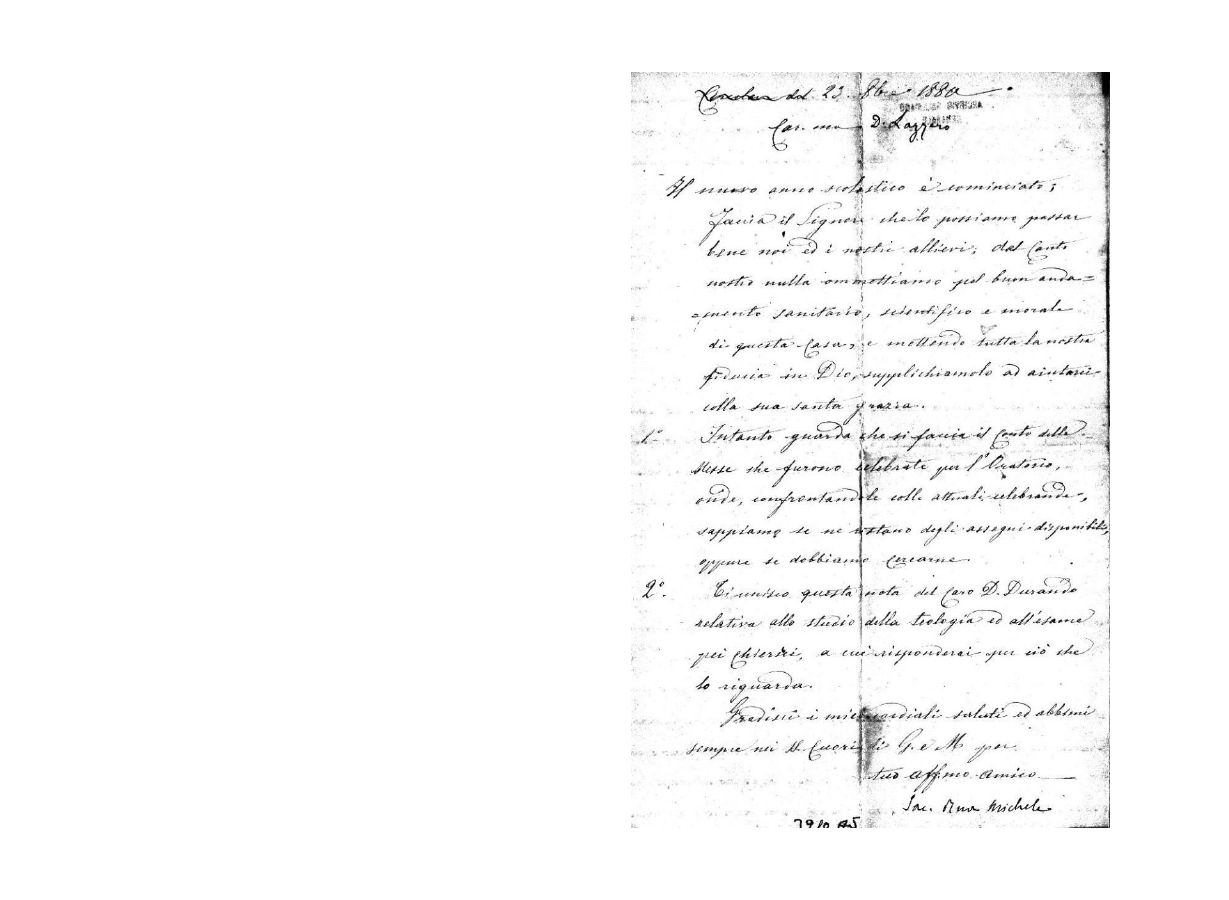 Circolare del 23. 8bre 1880
Car.mo D. Lazzero
Il nuovo anno scolastico è cominciato;
faccia il Signore che lo possiamo passar
bene noi ed i nostri allievi; dal Conto
nostro nulla ommettiamo pel buon anda=
=mento sanitario, scientifico e morale
di questa Casa, e mettendo tutta la nostra
fiducia in Dio, supplichiamolo ad aiutarci
colla sua santa grazia.
1.° Intanto guarda che si faccia il Conto delle
Messe che furono celebrate per l'Oratorio,
onde, confrontandole colle attuali celebrande,
sappiamo se ne restano degli assegni disponibili,
oppure se dobbiamo cercarne.
2°. Ti unisco questa nota del Caro D. Durando
relativa allo studio della teologia ed all'esame
pei Chierici, a cui risponderai per ciò che
lo riguarda.
Gradisci i miei cordiali saluti ed abbimi
sempre nei SS. Cuori di G. e M. per
tuo aff.mo amico
Sac. Rua Michele